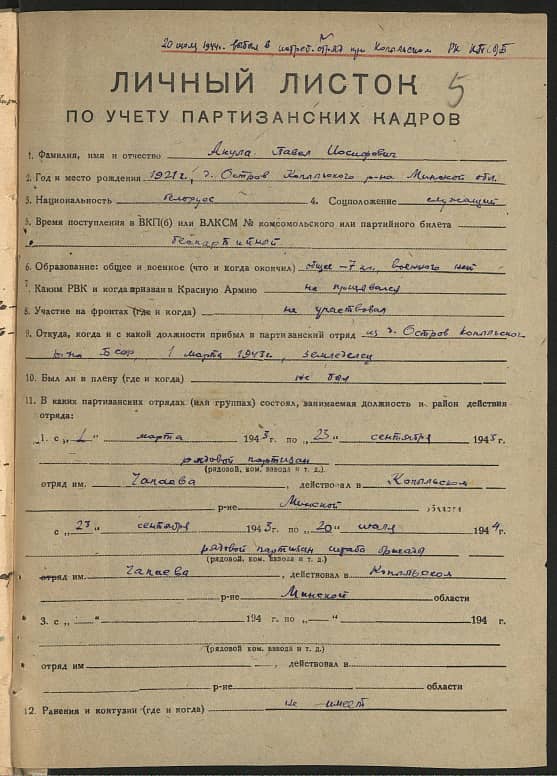 20 июля 1944г. выбыл в истреб. отряд при Копыльском РК КП(б)Б
5
ЛИЧНЫЙ ЛИСТОК
ПО УЧЕТУ ПАРТИЗАНСКИХ КАДРОВ
1. Фамилия, имя и отчество Акула Павел Иосифович
2. Год и место рождения 1921г., д. Остров Копыльского р-на Минской обл.
3. Национальность белорус 4. Соцположение служащий
5. Время поступления в ВКП(б) или ВЛКСМ № комсомольского или партийного билета
беспартийной
6. Образование: общее и военное (что и когда окончил) общее – 7 кл., военного нет
7. Каким РВК и когда призван в Красную Армию не призывался
8. Участие на фронтах (где и когда) не участвовал
9. Откуда, когда и с какой должности прибыл в партизанский отряд из д. Остров Копыльского
р-на БССР, 1 марта 1943г., земледелец
10. Был ли в плену (где и когда) не был
11. В каких партизанских отрядах (или группах) состоял, занимаемая должность и район действия
отряда:
1. с „1" марта 1943 г. по „23" сентября 1943г.
рядовой партизан
(рядовой, ком. взвода и т. д.)
отряд им. Чапаева, действовал в Копыльском
р-не Минской области
с „23" сентября 1943 г. по „20" июля 1944г.
рядовой партизан штаба бригады
(рядовой, ком. взвода и т. д.)
отряд им. Чапаева, действовал в Копыльском
р-не Минской области
3. с „ " 194 г. по „ " 194 г.
(рядовой, ком. взвода и т. д.)
отряд им. , действовал в
р-не области
12. Ранения и контузии (где и когда) не имеет